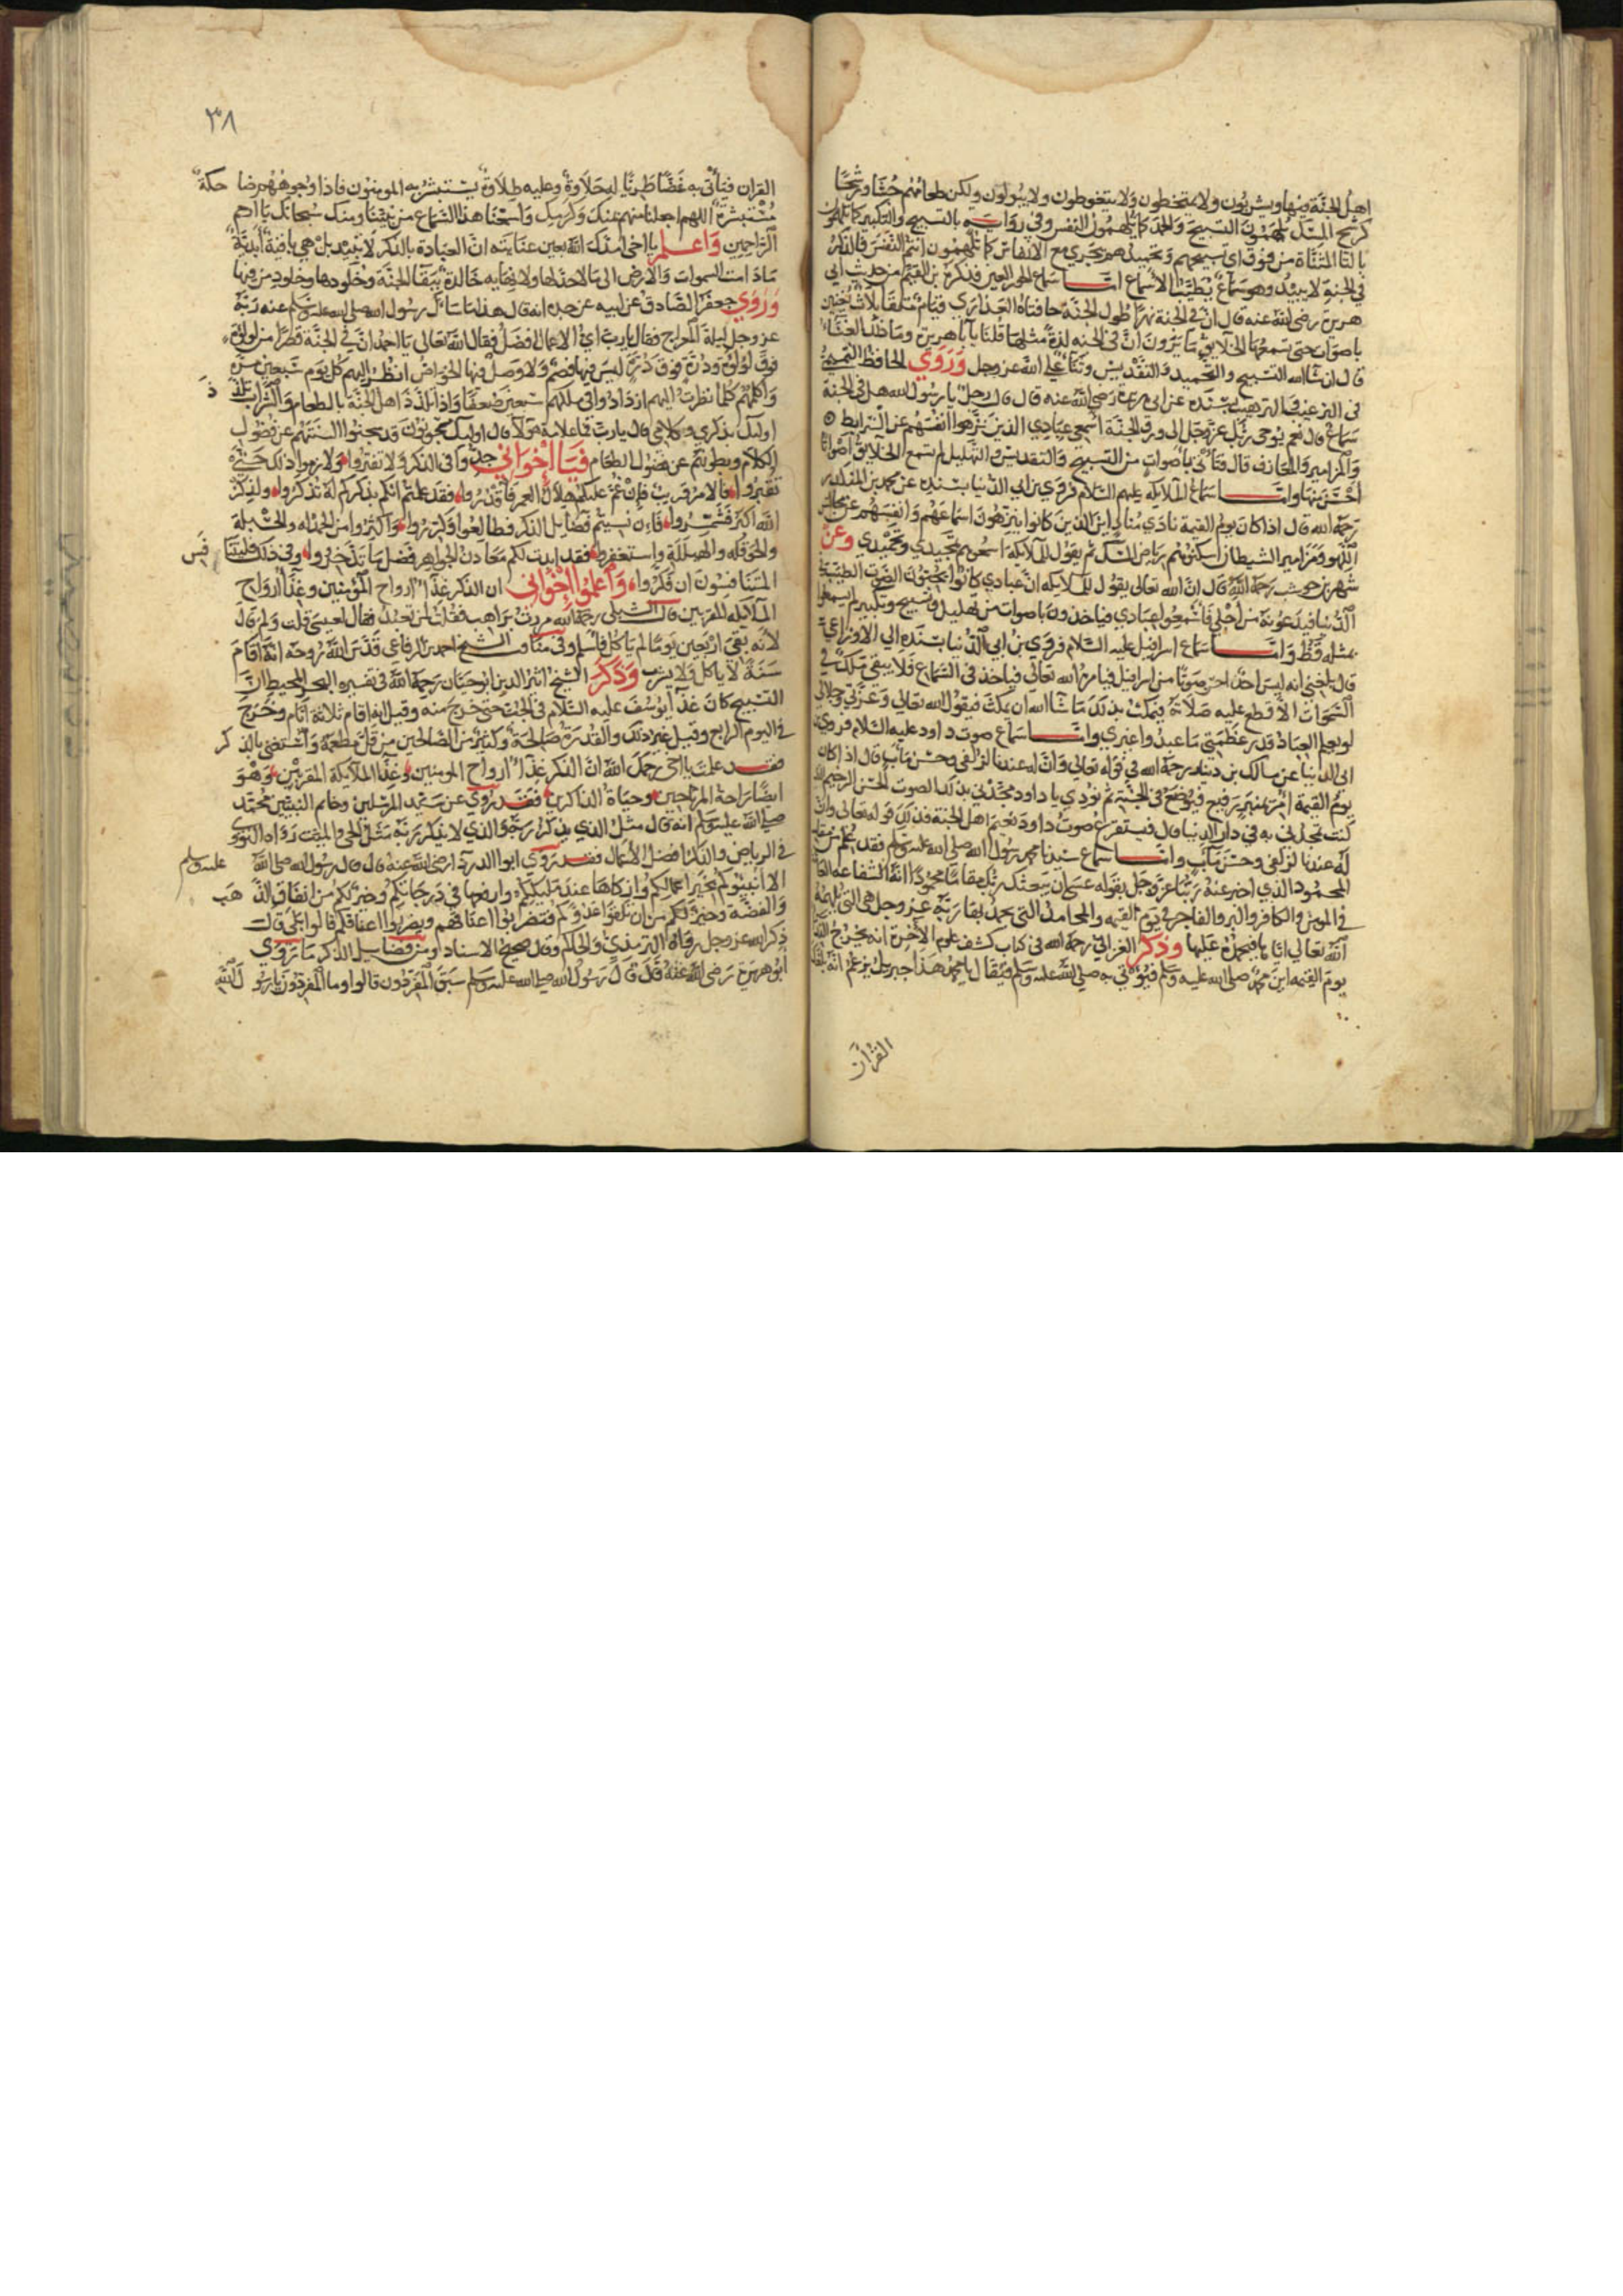 اهل الجنة فيها ويشربون ولا يتمخطون ولا يتغوطون ولا يبولون ولكن طعامهم جشا ورشحا
كرشح المسك يلهمون التسبيح والحمد كما يلهمون النفس وفي رواية بالتسبيح والتكبير كما تلهمون
بالتا المثناة من فوق اي تسبيحهم وتحميدهم يجري مع الانفاس كما تلهمون انتم النفس فالذكر
في الجنة لا يبيد وهو سماع يطيب الاسماع واما سماع الحور العين فذكره بن القيم من حديث ابي
هريرة رضي الله عنه قال ان في الجنة نهرا طول الجنة حافتاه العذارى قيام متقابلات يغنين
باصوات حتى يسمعها الخلايق ما يرون ان في الجنه لذة مثلها قلنا يا ابا هريرة وما ذلك الغناء
قال ان شاالله التسبيح والتحميد والتقديس وثناء على الله عز وجل وروي الحافظ
في الترغيب والترهيب بسنده عن ابي هريرة رضي الله عنه قال قال رجل يا رسول الله هل في الجنة
سماع قال نعم يوحى ربك عز وجل الى ورق الجنة اسمعي عبادي الذين نزهوا انفسهم عن البرابط
والمزامير والمعازف قال فتاتي باصوات من التسبيح والتقديس والتهليل لم تسمع الخلايق اصواتا
احسن منها واما سماع الملايكه عليهم السلام فروي بن ابي الدنيا بسنده عن محمد بن المنكدر
رحمه الله قال اذا كان يوم القيمة نادى مناد اين الذين كانوا ينزهون اسماعهم وانفسهم عن مجالس
اللهو ومزامير الشيطان اسكنوهم رياض المسك ثم يقول للملايكة اسمعوهم تمجيدي وتحميدي وعن
شهر بن حوشب رحمه الله قال ان الله تعالى يقول للملايكه ان عبادي كانوا يحبون الصوت الطيب في
الدنيا فيدعونه من اجلي فاسمعوا عبادي فياخذون باصوات من تهليل وتسبيح وتكبير لم يسمعوا
بمثله قط واما سماع اسرافيل عليه السلام فروي بن ابي الدنيا بسنده الى الاوزاعي
قال بلغني انه ليس احد احسن صوتا من اسرافيل فيامره الله تعالى فياخذ في السماع فلا يبقى ملك في
السموات الا قطع عليه صلاته فيمكث بذلك ماشاالله ان يمكث فيقول الله تعالى وعزتي وجلالي
لو يعلم العباد قدر عظمتي ما عبدوا غيري واما سماع صوت داود عليه السلام فروي
ابن ابي الدنيا عن مالك بن دينار رحمه الله في قوله تعالى وان له عندنا لزلفى وحسن ماب قال اذا كان
يوم القيمة امر بمنبر رفيع فيوضع في الجنة ثم نودي يا داود مجدني بذلك الصوت الحسن الرخيم الذي
كنت تمجدني به في دار الدنيا قال فيستفرغ صوت داود نعيم اهل الجنة فذلك قوله تعالى وان
له عندنا لزلفى وحسن ماب واما سماع سيدنا محمد رسول الله صلى الله عليه وسلم فقد علم من مقامه
المحمود الذي اخبر عنه ربنا عز وجل بقوله عسى ان يبعثك ربك مقاما محمودا انه الشفاعة العامة
في المومن والكافر والبر والفاجر في يوم القيمه والمحامد التي يحمد بها ربه عز وجل هي التي يلهمه
الله تعالى اياها فيحمده عليها وذكر الغزالي رحمه الله في كتاب كشف علوم الآخرة انه يخرج الندا
يوم القيمه اين محمد صلى الله عليه وسلم فيؤتى به صلى الله عليه وسلم فيقال يا محمد هذا جبريل يزعم انه بلغك
القرآن
٣٨
القران فيتاتى به غضا طريا له حلاوة وعليه طلاوة يستبشر به المومنون فاذا وجوههم ضاحكة
مستبشرة اللهم اجعلنا منهم بمنك وكرمك واسمعنا هذا السماع من نبينا ومنك سبحانك يا ارحم
الراحمين واعلم يا اخي امدك الله بعين عنايته ان العبادة بالذكر لا تبيد بل هي باقية ابدية
مادامت السموات والارض الى مالا حد لها ولا نهايه خالدة ببقا الجنة وخلودها وخلود من فيها
وروي جعفر الصادق عن ابيه عن جده انه قال هذا ما سال رسول الله صلى الله عليه وسلم عنه ربه
عز وجل ليلة المعراج فقال يا رب اي الاعمال افضل فقال الله تعالى يا احمد ان في الجنة قصرا من لولوة
فوق لولوة ودرة فوق درة ليس فيها فصم ولا وصل فيها الخواص انظر اليهم كل يوم سبعين مرة
واكلمهم كلما نظرت اليهم ازداد وافي ملكهم سبعين ضعفا واذا تلذذ اهل الجنة بالطعام والشراب تلذذ
اوليك بذكري وكلامي قال يارب فما علامة هولا قال اوليك مسجونون قد سجنوا السنتهم عن فضول
الكلام وبطونهم عن فضول الطعام فيا اخواني جدوا في الذكر ولا تفتروا ولازموا ذلك حتى
تقبروا فالامر قريب فان غم عليكم هلال العمر فاقدروا فقد علمتم انكم بذكركم له تذكروا ولذكر
الله اكبر فشمروا فان نسيتم فضايل الذكر فطالعوا وكرروا واكثروا من الحمدله والحسبلة
والحوقله والهيللة واستغفروا فقد ابديت لكم معادن الجواهر فضل ما تدخروا وفي ذلك فليتنافس
المتنافسون ان فكروا واعلموا اخواني ان الذكر غذاء ارواح المؤمنين وغذا ارواح
الملايكه المقربين قال الشبلي رحمه الله مررت براهب فقلت لمن تعبد فقال لعيسى قلت ولم قال
لانه بقى اربعين يوما لم ياكل فاسلم وفي مناقب الشيخ احمد بن الرفاعي قدس الله روحه انه اقام
سنة لا ياكل ولا يشرب وذكر الشيخ اثير الدين ابو حيان رحمه الله في تفسيره البحر المحيط ان
التسبيح كان غذا يوسف عليه السلام في الجب حتى خرج منه وقيل انه اقام ثلاثة ايام وخرج
في اليوم الرابع وقيل غير ذلك والقدرة صالحة وكثير من الصالحين من قل مطعمه واستغنى بالذكر
فقد علمت يا اخي رحمك الله ان الذكر غذاء ارواح المومنين وغذا الملايكة المقربين وهو
ايضا راحة المرتاحين وحياة الذاكرين فقد روي عن سيد المرسلين وخاتم النبيين محمد
صلى الله عليه وسلم انه قال مثل الذي يذكر ربه والذي لا يذكر ربه مثل الحي والميت رواه النووي
في الرياض والذكر افضل الاعمال فقد روي ابوا الدرداء رضي الله عنه قال قال رسول الله صلى الله عليه وسلم
الا انبيوكم بخير اعمالكم وازكاها عند مليككم وارفعها في درجاتكم وخير لكم من انفاق الذهب
والفضة وخير لكم من ان تلقوا عدوكم فتضربوا اعناقهم ويضربوا اعناقكم قالوا بلى قال
ذكر الله عز وجل رواه الترمذي والحاكم وقال صحيح الاسناد ومن فضايل الذكر ما روي
ابو هريرة رضي الله عنه قال قال رسول الله صلى الله عليه وسلم سبق المفردون قالوا وما المفردون يا رسول الله